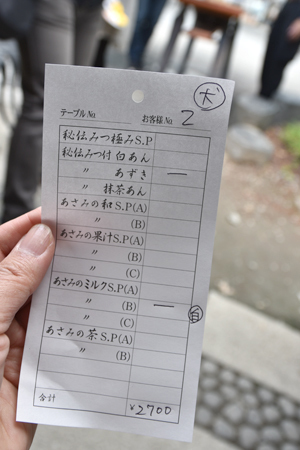 犬
テーブルNo. お客様No. 2
秘伝みつ極みS.P
秘伝みつ付 白あん
〃 あずき 一
〃 抹茶あん
あさみの和S.P(A)
〃 (B)
あさみの果汁S.P(A)
〃 (B)
〃 (C)
あさみのミルクS.P(A)
〃 (B) 一
〃 (C)
あさみの茶S.P(A)
〃 (B)
合計 ¥2700